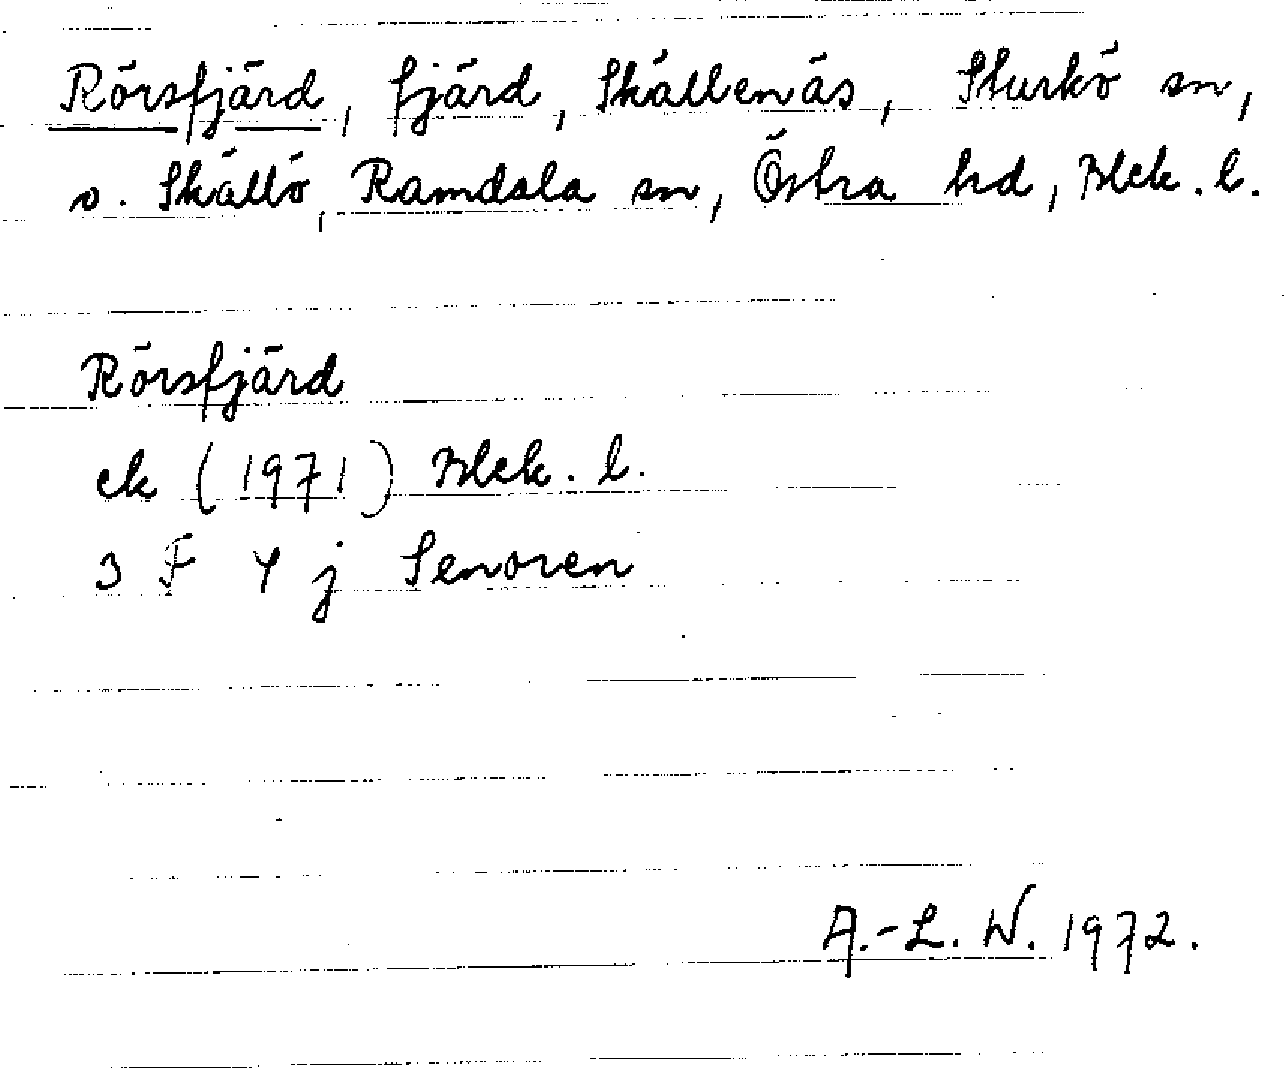 Rörsfjärd, fjärd, Skällenäs, Sturkö sn,
o. Skällö, Ramdala sn, Östra hd, Blek. l.
Rörsfjärd
ek (1971) Blek. l.
3 F 4 j Senoren
A.-L. W. 1972.